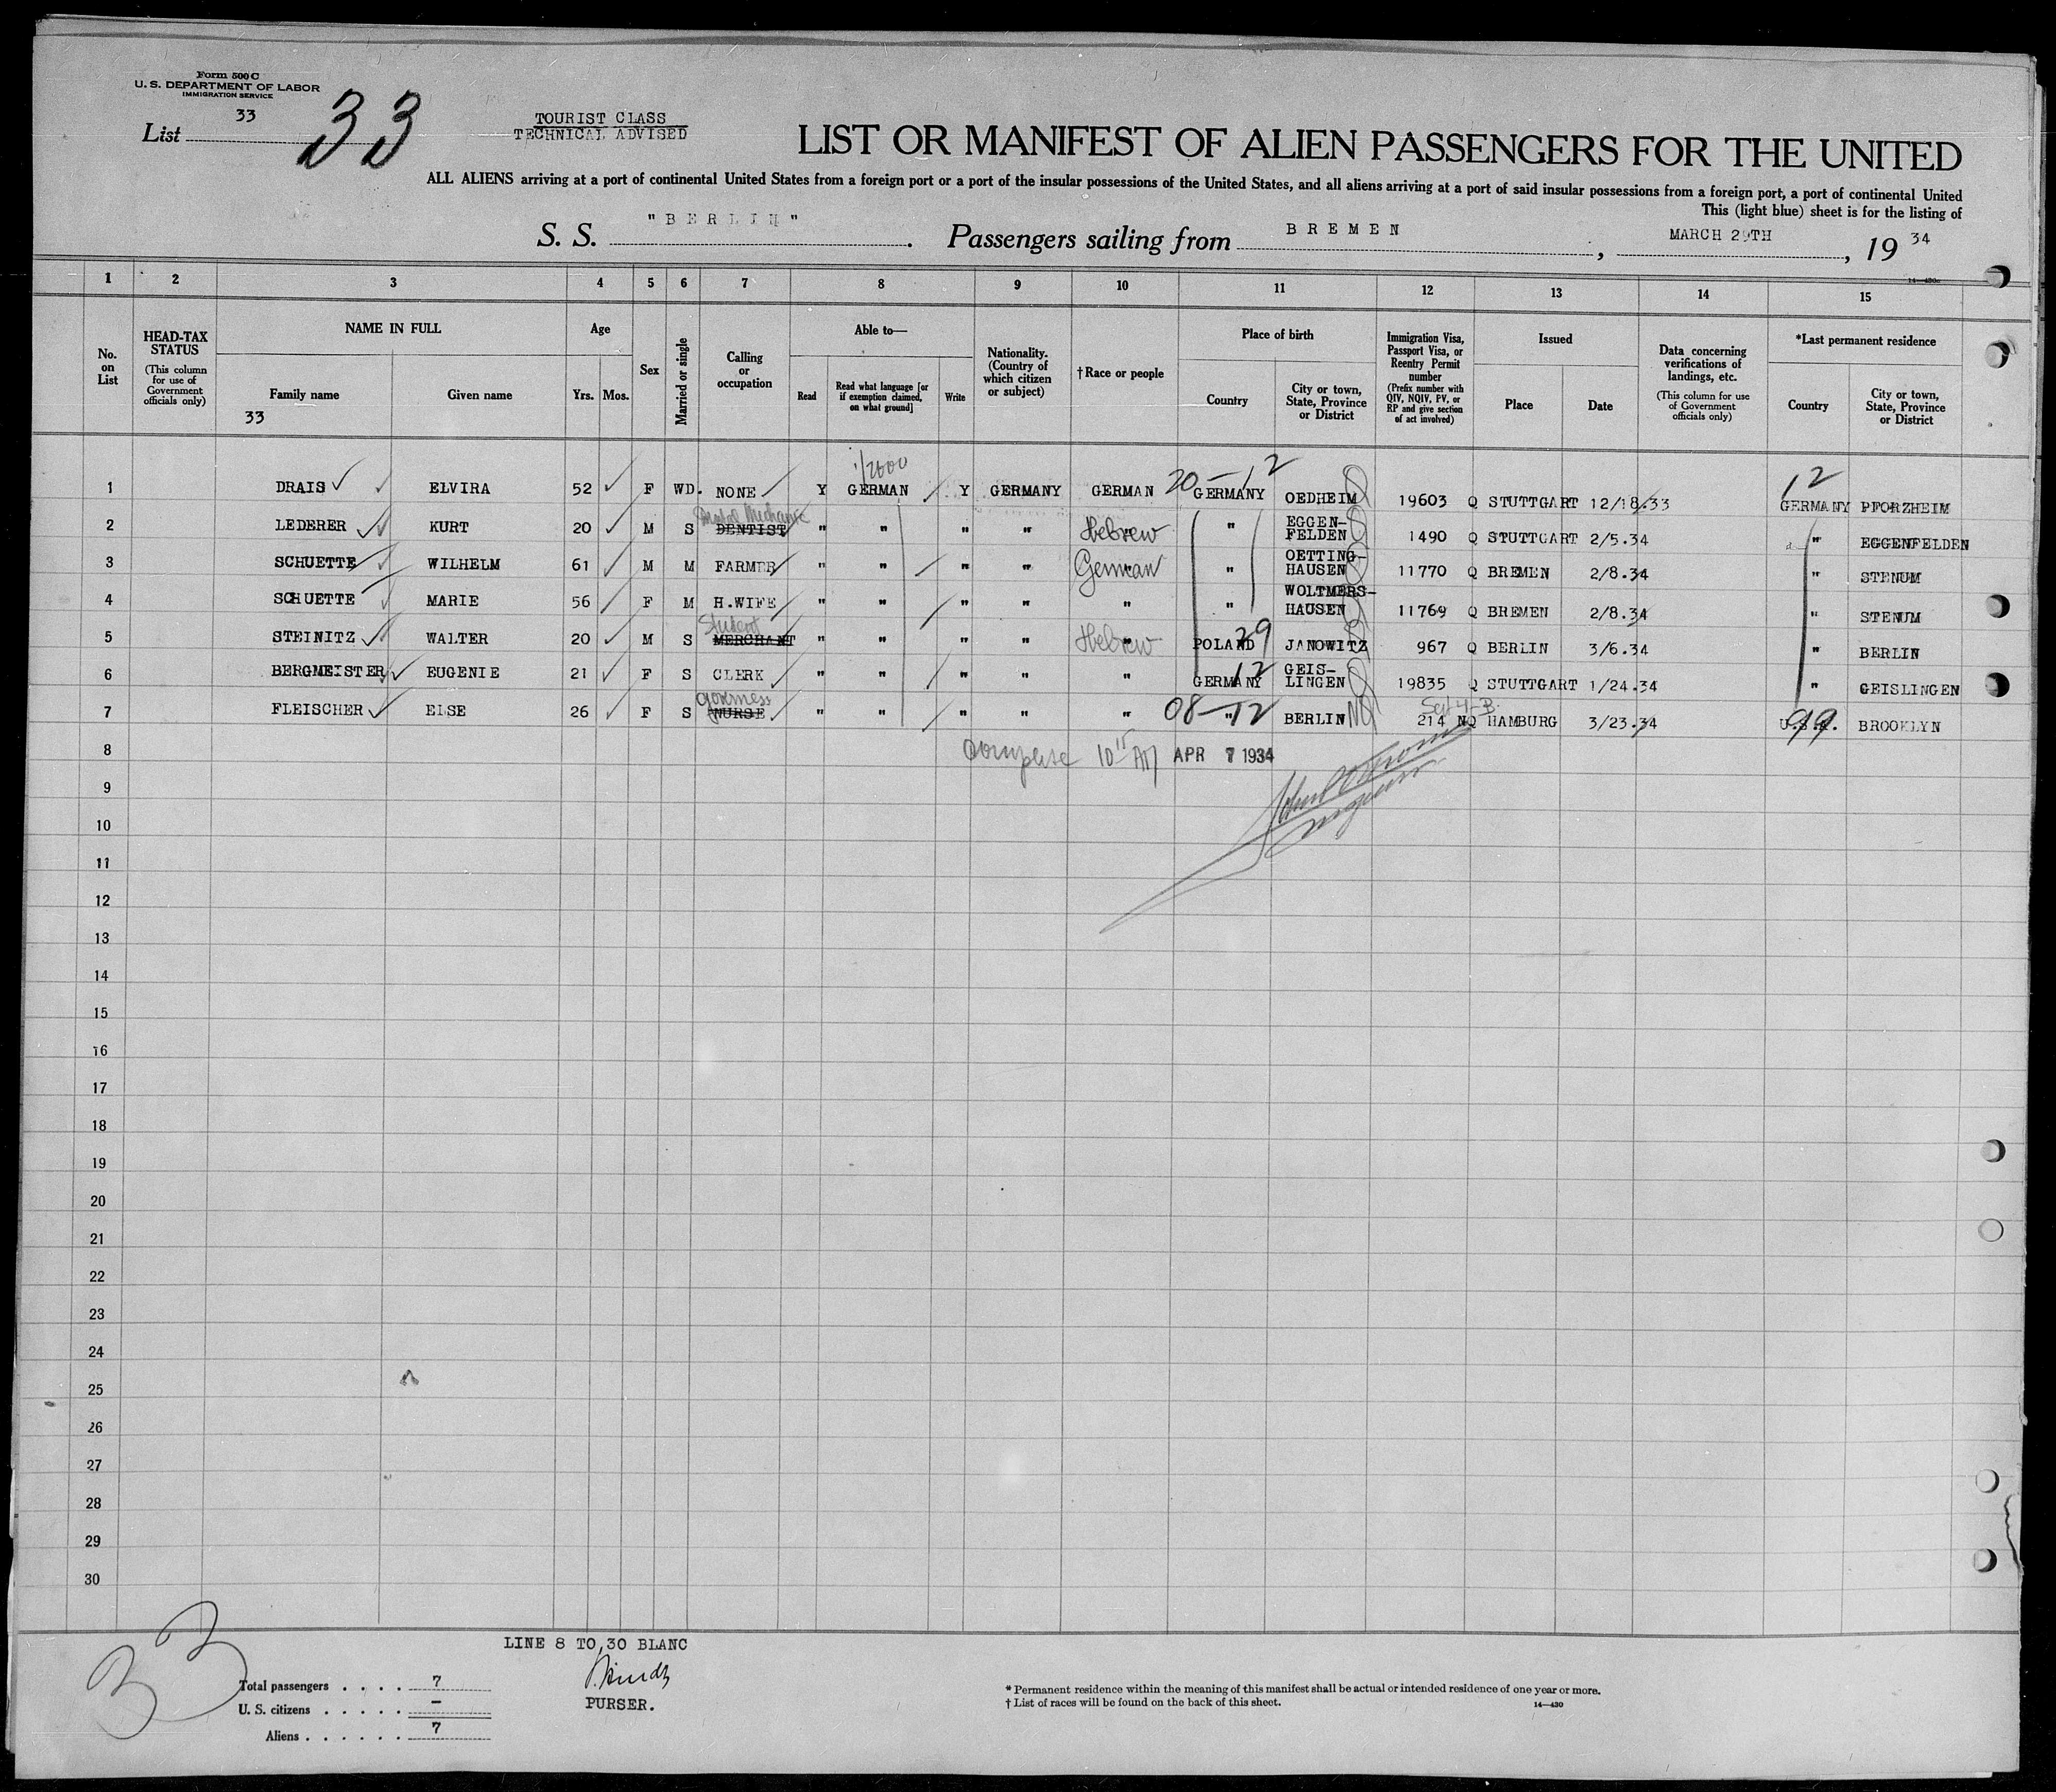 Form 500 C
U. S. DEPARTMENT OF LABOR
IMMIGRATION SERVICE
List 33 33
TOURIST CLASS
TECHNICAL ADVISED
LIST OR MANIFEST OF ALIEN PASSENGERS FOR THE UNITED
ALL ALIENS arriving at a port of continental United States from a foreign port or a port of the insular possessions of the United States, and all aliens arriving at a port of said insular possessions from a foreign port, a port of continental United
This (light blue) sheet is for the listing of
S. S. "BERLIN". Passengers sailing from BREMEN, MARCH 29TH, 19 34
14—430c
1 2 3 4 5 6 7 8 9 10 11 12 13 14 15
No. on List
HEAD-TAX STATUS (This column for use of Government officials only)
NAME IN FULL
Family name Given name
33
Age
Yrs. Mos.
Sex
Married or single
Calling or occupation
Able to—
Read
Read what language [or if exemption claimed, on what ground]
Write
Nationality. (Country of which citizen or subject)
†Race or people
Place of birth
Country
City or town, State, Province or District
Immigration Visa, Passport Visa, or Reentry Permit number (Prefix number with QIV, NQIV, PV, or RP and give section of act involved)
Issued
Place Date
Data concerning verifications of landings, etc. (This column for use of Government officials only)
*Last permanent residence
Country
City or town, State, Province or District
1 DRAIS ELVIRA 52 F WD. NONE Y GERMAN Y GERMANY GERMAN 20-12 GERMANY OEDHEIM 19603 Q STUTTGART 12/18.33 12 GERMANY PFORZHEIM
2 LEDERER KURT 20 M S DENTIST " " " " Hebrew " EGGEN-FELDEN 1490 Q STUTTGART 2/5.34 " EGGENFELDEN
3 SCHUETTE WILHELM 61 M M FARMER " " " " German " OETTING-HAUSEN 11770 Q BREMEN 2/8.34 " STENUM
4 SCHUETTE MARIE 56 F M H.WIFE " " " " " " WOLTMERS-HAUSEN 11769 Q BREMEN 2/8.34 " STENUM
5 STEINITZ WALTER 20 M S Student MERCHANT " " " " Hebrew " POLAND 29 JANOWITZ 967 Q BERLIN 3/6.34 " BERLIN
6 BERGMEISTER EUGENIE 21 F S CLERK " " " " " GERMANY 12 GEIS-LINGEN 19835 Q STUTTGART 1/24.34 " GEISLINGEN
7 FLEISCHER ELSE 26 F S Governess NURSE " " " " " 08-12 " BERLIN NQ 214 NQ HAMBURG 3/23.34 U.S.A. 99 BROOKLYN
8 Complete 10 15 AM APR 7 1934
9
10
11
12
13
14
15
16
17
18
19
20
21
22
23
24
25
26
27
28
29
30
33
LINE 8 TO 30 BLANC
PURSER.
Total passengers . . . . 7
U. S. citizens . . . . . –
Aliens . . . . . . 7
* Permanent residence within the meaning of this manifest shall be actual or intended residence of one year or more.
† List of races will be found on the back of this sheet.
14—430